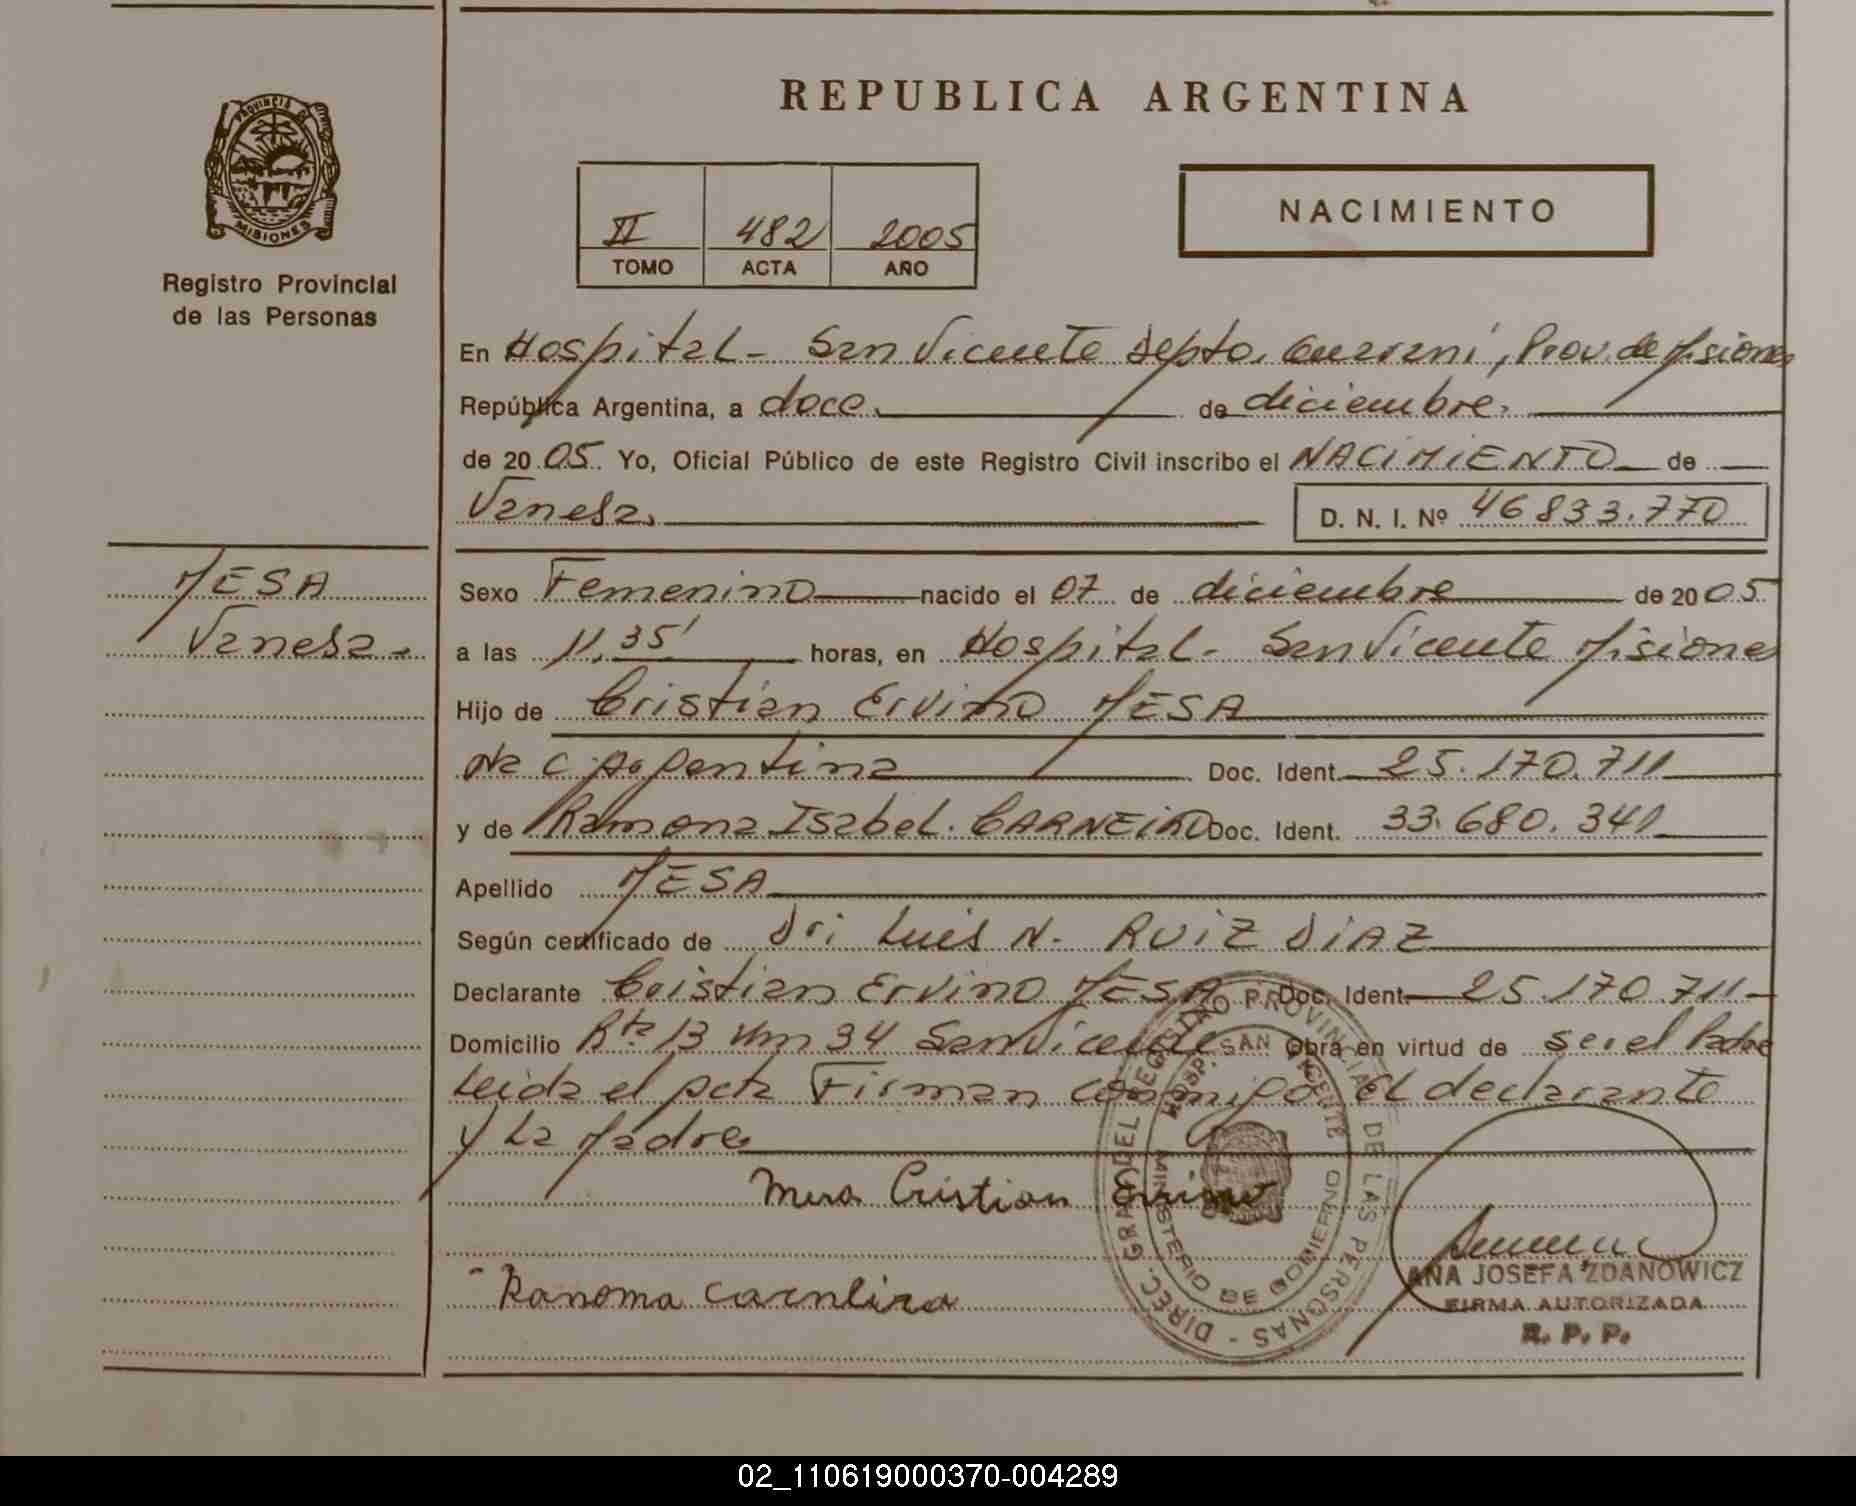 REPUBLICA ARGENTINA
PROVINCIA DE
MISIONES
Registro Provincial
de las Personas
II 482 2005
TOMO ACTA AÑO
NACIMIENTO
En Hospital - San Vicente Depto. Guaraní, Prov. de Misiones
República Argentina, a doce de diciembre
de 2005. Yo, Oficial Público de este Registro Civil inscribo el NACIMIENTO de
Vanesa. D. N. I. Nº 46833.770
MESA
Vanesa.
Sexo Femenino nacido el 07 de diciembre de 2005
a las 11,35' horas, en Hospital - San Vicente Misiones
Hijo de Cristian Ervino MESA
Nac Argentina Doc. Ident. 25.170.711
y de Ramona Isabel. CARNEIRO Doc. Ident. 33.680.341
Apellido MESA
Según certificado de Dr: Luis N. RUIZ DIAZ
Declarante Cristian Ervino MESA Doc. Ident. 25.170.711
Domicilio Rta 13 Km 34 San Vicente Obra en virtud de ser el Padre
Leida el acta Firman conmigo el declarante
y la Madre
Mesa Cristian Ervino
Ranoma Carneira
DIREC. GRAL DEL REGISTRO PROVINCIAL DE LAS PERSONAS -
HOSP. SAN VICENTE
MINISTERIO DE GOBIERNO
ANA JOSEFA ZDANOWICZ
FIRMA AUTORIZADA
R. P. P.
02_110619000370-004289